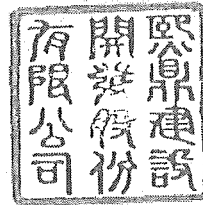 熙鼎建設
開發股份
有限公司